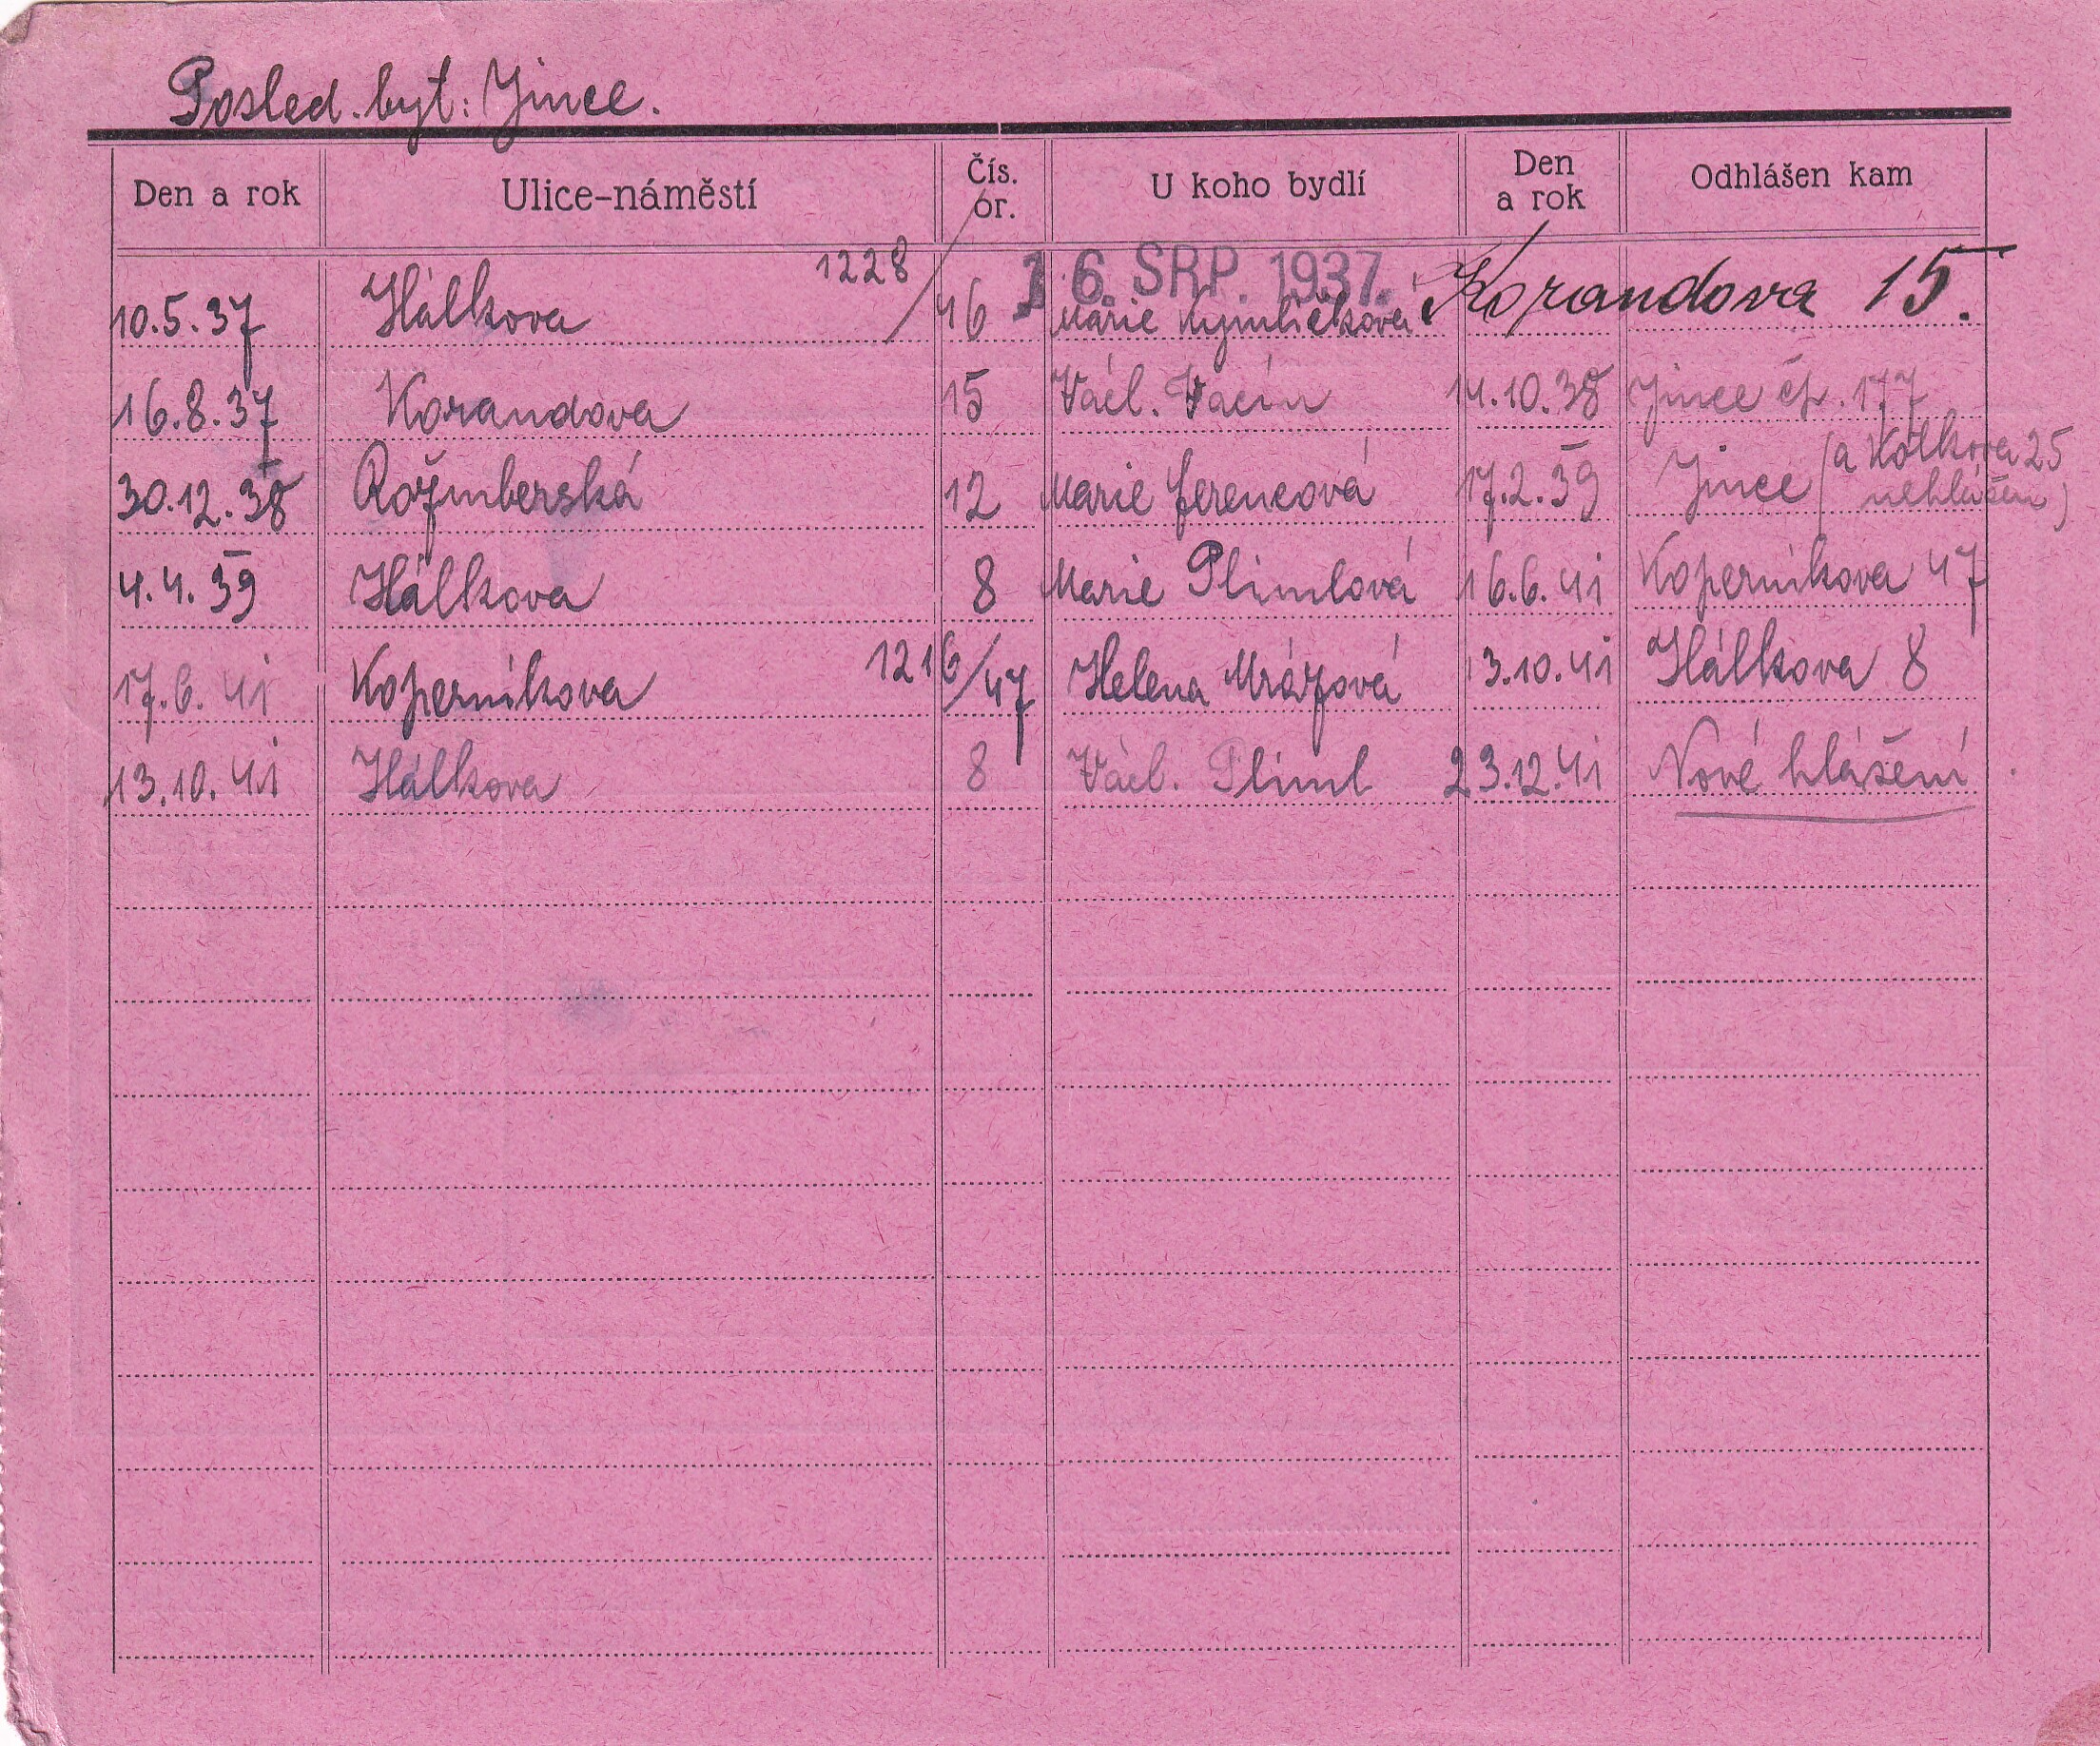 Posled. byt: Jince.
Den a rok Ulice-náměstí Čís. or. U koho bydlí Den a rok Odhlášen kam
16. SRP. 1937.
10.5.37 Hálkova 1228/46 Marie Kymličková Korandova 15.
16.8.37 Korandova 15 Václ. Vacín 14.10.38 Jince čp. 177
30.12.38 Rožmberská 12 Marie Ferencová 17.2.39 Jince (a Hálkova 25
nehlášen)
4.4.39 Hálkova 8 Marie Plimlová 16.6.41 Koperníkova 47
17.6.41 Koperníkova 1216/47 Helena Mrázová 13.10.41 Hálkova 8
13.10.41 Hálkova 8 Václ. Pliml 23.12.41 Nové hlášení